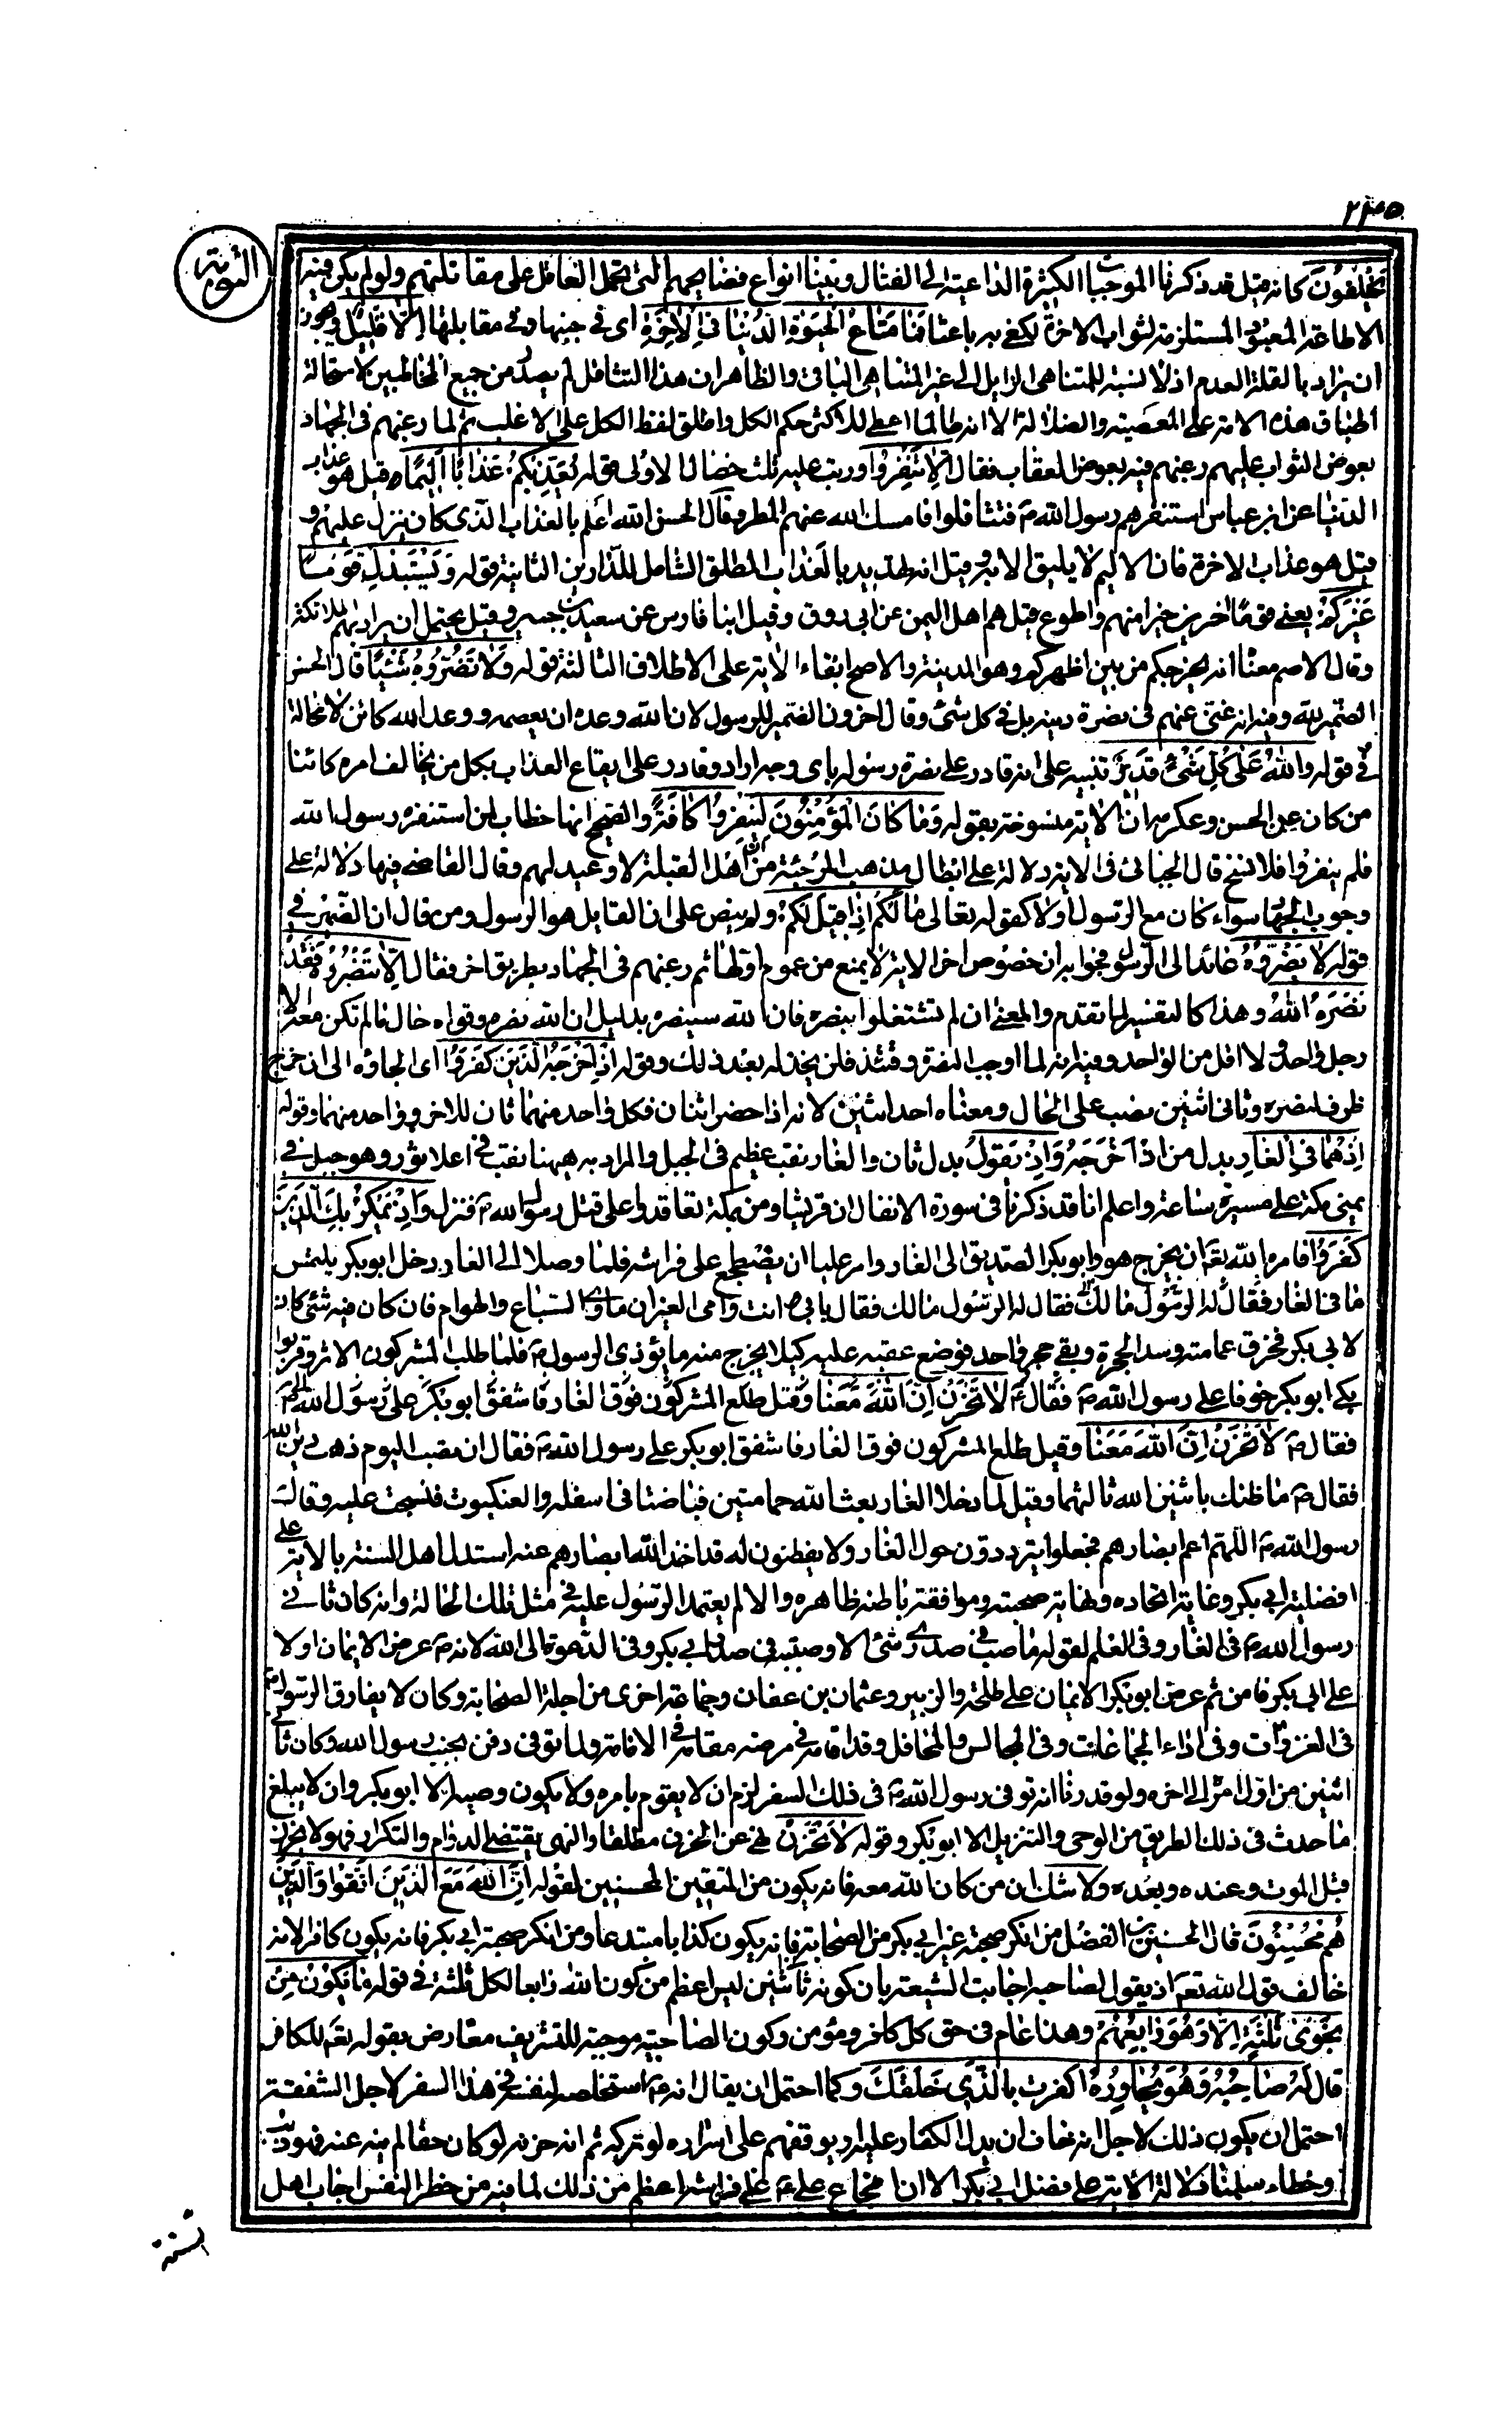 ٢٤٥
التوبة
تخلفون كانه قيل قد ذكرنا الموجبات الكثيرة الداعية الى القتال وبينا انواع فضايحهم التى تحمل العاقل على مقاتلتهم ولو لم يكن فيه
الا طاعة المعبود المستلزمة لثواب الاخرة لكفى به باعثا فَمَا مَتَاعُ الْحَيٰوةِ الدُّنْيَا فِى الْاٰخِرَةِ اى فى جنبها وفى مقابلتها اِلَّا قَلِيلٌ ويجوز
ان يراد بالقلة العدم اذ لا نسبة للمتناهى الزايل الى غير المتناهى الباقى والظاهر ان هذا التثاقل لم يصدر من جميع المخاطبين لاستحالة
اطباق هذه الامة على المعصية والضلالة الا انه طالما اعطى للاكثر حكم الكل واطلق لفظ الكل على الاغلب ثم لما رغبهم فى الجهاد
بعوض الثواب عليهم رغبهم فيه بعوض العقاب فقال اِلَّا تَنْفِرُوا ورتب عليه ثلث خصال الاولى قوله يُعَذِّبْكُمْ عَذَابًا اَلِيمًا قيل هو عذاب
الدنيا عن ابن عباس استنفرهم رسول الله م فتثاقلوا فامسك الله عنهم المطر وقال الحسن الله اعلم بالعذاب الذى كان ينزل عليهم و
قيل هو عذاب الاخرة فان الاليم لا يليق الا به وقيل انه تهديد بالعذاب المطلق الشامل للدارين الثانية قوله وَيَسْتَبْدِلْ قَوْمًا
غَيْرَكُمْ يعنى قوما اخرين خيرا منهم واطوع قيل هم اهل اليمن عن ابى روق وقيل ابنا فارس عن سعيد بن جبير وقيل يحتمل ان يراد بهم الملائكة
وقال الاصم معناه انه يخرجكم من بين اظهركم وهو المدينة والاصح ابقاء الاية على الاطلاق الثالثة قوله وَلَا تَضُرُّوهُ شَيْئًا قال الحسن
الضمير لله وفيه انه غنى عنهم فى نصرة دينه بل فى كل شئ وقال اخرون الضمير للرسول لان الله وعده ان يعصمه ووعد الله كائن لا محالة
فى قوله وَاللهُ عَلٰى كُلِّ شَىْءٍ قَدِيرٌ تنبيه على انه قادر على نصرة رسوله باى وجه اراد وقادر على ايقاع العذاب بكل من يخالف امره كائنا
من كان عن الحسن وعكرمة ان الاية منسوخة بقوله وَمَا كَانَ الْمُؤْمِنُونَ لِيَنْفِرُوا كَافَّةً والصحيح انها خطاب لمن استنفره رسول الله
فلم ينفروا فلا نسخ قال الجبائى فى الاية دلالة على ابطال مذهب المرجئة من ان اهل القبلة لا وعيد لهم وقال القاضى فيها دلالة على
وجوب الجهاد سواء كان مع الرسول اولا كقوله تعالى مَا لَكُمْ اِذَا قِيلَ لَكُمْ ولم ينص على ان القايل هو الرسول ومن قال ان الضمير فى
قوله لَا تَضُرُّوهُ عائد الى الرسول فجوابه ان خصوص اخر الاية لا يمنع من عموم اولها ثم رغبهم فى الجهاد بطريق اخر فقال اِلَّا تَنْصُرُوهُ فَقَدْ
نَصَرَهُ اللهُ وهذا كالتفسير لما تقدم والمعنى ان لم تشتغلوا بنصره فان الله سينصره بدليل ان الله نصره وقواه حال ما لم تكن معه الا
رجل واحد ولا اقل من الواحد وفيه انه لما اوجب النصرة وقتئذ فلن يخذله بعد ذلك وقوله اِذْ اَخْرَجَهُ الَّذِينَ كَفَرُوا اى الجاؤه الى ان خرج
ظرف لنصره وثانى اثنين نصب على الحال ومعناه احد اثنين لانه اذا حضر اثنان فكل واحد منهما ثان للاخر وواحد منهما وقوله
اِذْ هُمَا فِى الْغَارِ بدل من اذ اخرجه وَاِذْ يَقُولُ بدل ثان والغار نقب عظيم فى الجبل والمراد به ههنا نقب فى اعلا ثور وهو جبل فى
يمنى مكة على مسيرة ساعة واعلم انا قد ذكرنا فى سورة الانفال ان قريشا ومن بمكة تعاقدوا على قتل رسول الله م فنزل وَاِذْ يَمْكُرُ بِكَ الَّذِينَ
كَفَرُوا فامره الله تعم ان يخرج هو وابو بكر الصديق الى الغار وامر عليا ان يضطجع على فراشه فلما وصلا الى الغار دخل ابو بكر يلتمس
ما فى الغار فقال له الرسول مالك فقال له الرسول مالك فقال بابى انت وامى الغيران ماوى السباع والهوام فان كان فيه شئ كان
لابى بكر فخرق عمامته وسد الحجرة وبقى حجر واحد فوضع عقبه عليه كيلا يخرج منه ما يؤذى الرسول م فلما طلب المشركون الاثر وقربوا
بكى ابو بكر خوفا على رسول الله م فقال م لَا تَحْزَنْ اِنَّ اللهَ مَعَنَا وقيل طلع المشركون فوق الغار فاشفق ابو بكر على رسول الله م
فقال م لَا تَحْزَنْ اِنَّ اللهَ مَعَنَا وقيل طلع المشركون فوق الغار فاشفق ابو بكر على رسول الله م فقال ان نصب اليوم ذهب دين الله
فقال م ما ظنك باثنين الله ثالثهما وقيل لما دخلا الغار بعث الله حمامتين فباضتا فى اسفله والعنكبوت فنسجت عليه وقال
رسول الله م اللهم اعم ابصارهم فجعلوا يترددون حول الغار ولا يفطنون له قد اخذ الله ابصارهم عنه استدل اهل السنة بالاية على
افضلية ابى بكر وغاية اتحاده ونهاية صحبته وموافقة باطنه ظاهره والا لم يعتمد الرسول عليه فى مثل تلك الحالة وانه كان ثانى
رسول الله م فى الغار وفى العلم لقوله ما صب فى صدرى شئ الا وصببته فى صدر ابى بكر وفى الدعوة الى الله لانه م عرض الايمان اولا
على ابى بكر فامن ثم عرض ابو بكر الايمان على طلحة والزبير وعثمان بن عفان وجماعة اخرى من اجلة الصحابة وكان لا يفارق الرسول م
فى الغزوات وفى اداء الجماعات وفى المجالس والمحافل وقد اقامه فى مرضه مقامه فى الامامة ولما توفى دفن بجنب رسول الله وكان ثانى
اثنين من اول امره الى اخره ولو قدرنا انه توفى رسول الله م فى ذلك السفر لزم ان لا يقوم بامره ولا يكون وصيه الا ابو بكر وان لا يبلغ
ما حدث فى ذلك الطريق من الوحى والتنزيل الا ابو بكر وقوله لَا تَحْزَنْ نهى عن الحزن مطلقا والنهى يقتضى الدوام والتكرار فهو لا يحزن
قبل الموت وعنده وبعده ولا شك ان من كان الله معه فانه يكون من المتقين المحسنين لقوله اِنَّ اللهَ مَعَ الَّذِينَ اتَّقَوْا وَالَّذِينَ
هُمْ مُحْسِنُونَ قال الحسين بن الفضل من انكر صحبة غير ابى بكر من الصحابة فانه يكون كذابا مبتدعا ومن انكر صحبة ابى بكر فانه يكون كافرا لانه
خالف قول الله تعم اذ يقول لصاحبه اجابت الشيعة بان كونه ثانى اثنين ليس اعظم من كون الله رابعا لكل ثلثة فى قوله مَا يَكُونُ مِنْ
نَجْوٰى ثَلٰثَةٍ اِلَّا هُوَ رَابِعُهُمْ وهذا عام فى حق كل كافر ومؤمن وكون الصاحبية موجبة للتشريف معارض بقوله تعم للكافر
قَالَ لَهُ صَاحِبُهُ وَهُوَ يُحَاوِرُهُ اَكَفَرْتَ بِالَّذِى خَلَقَكَ وكما احتمل ان يقال انه م استخلصه لنفسه فى هذا السفر لاجل الشفقة
احتمل ان يكون ذلك لاجل انه خاف ان يدل الكفار عليه او يوقفهم على اسراره لو تركه ثم انه حزنه لو كان حقا لم ينه عنه فهو ذنب
وخطاء سلمنا دلالة الاية على فضل ابى بكر الا ان اضطجاع على م على فراشه اعظم من ذلك لما فيه من خطر النفس اجاب اهل
السنة